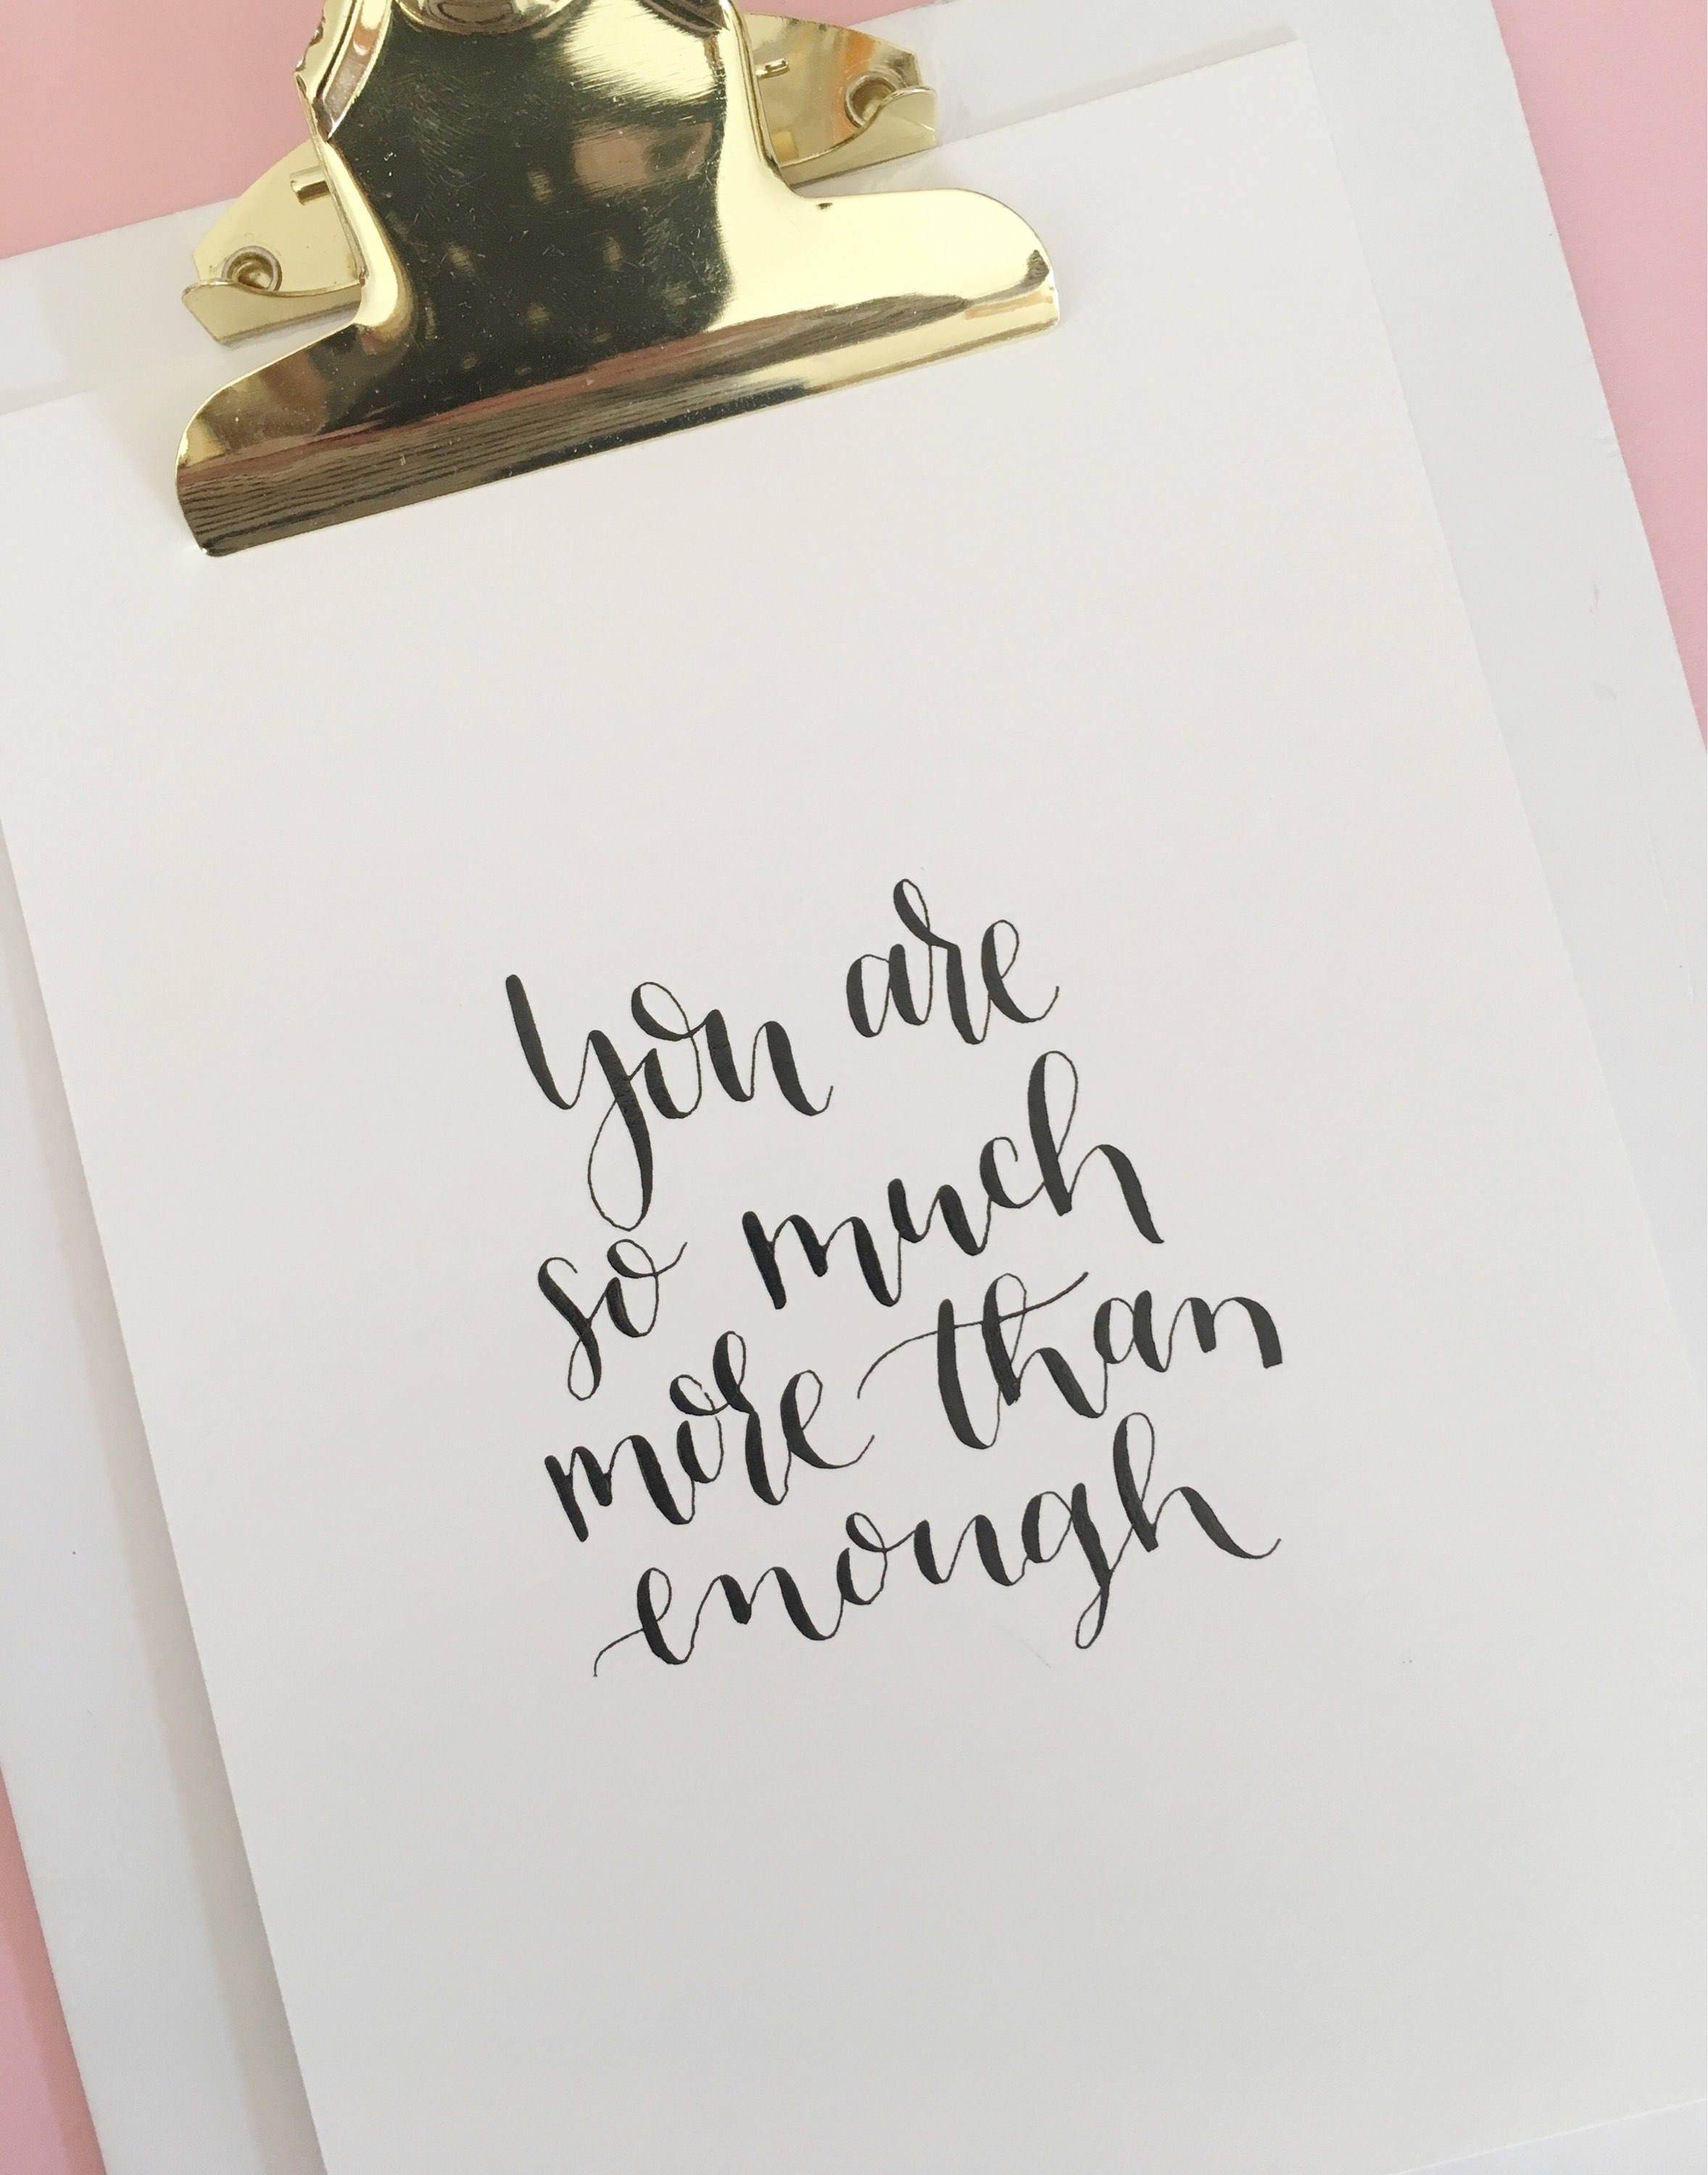 you are
so much
more than
enough